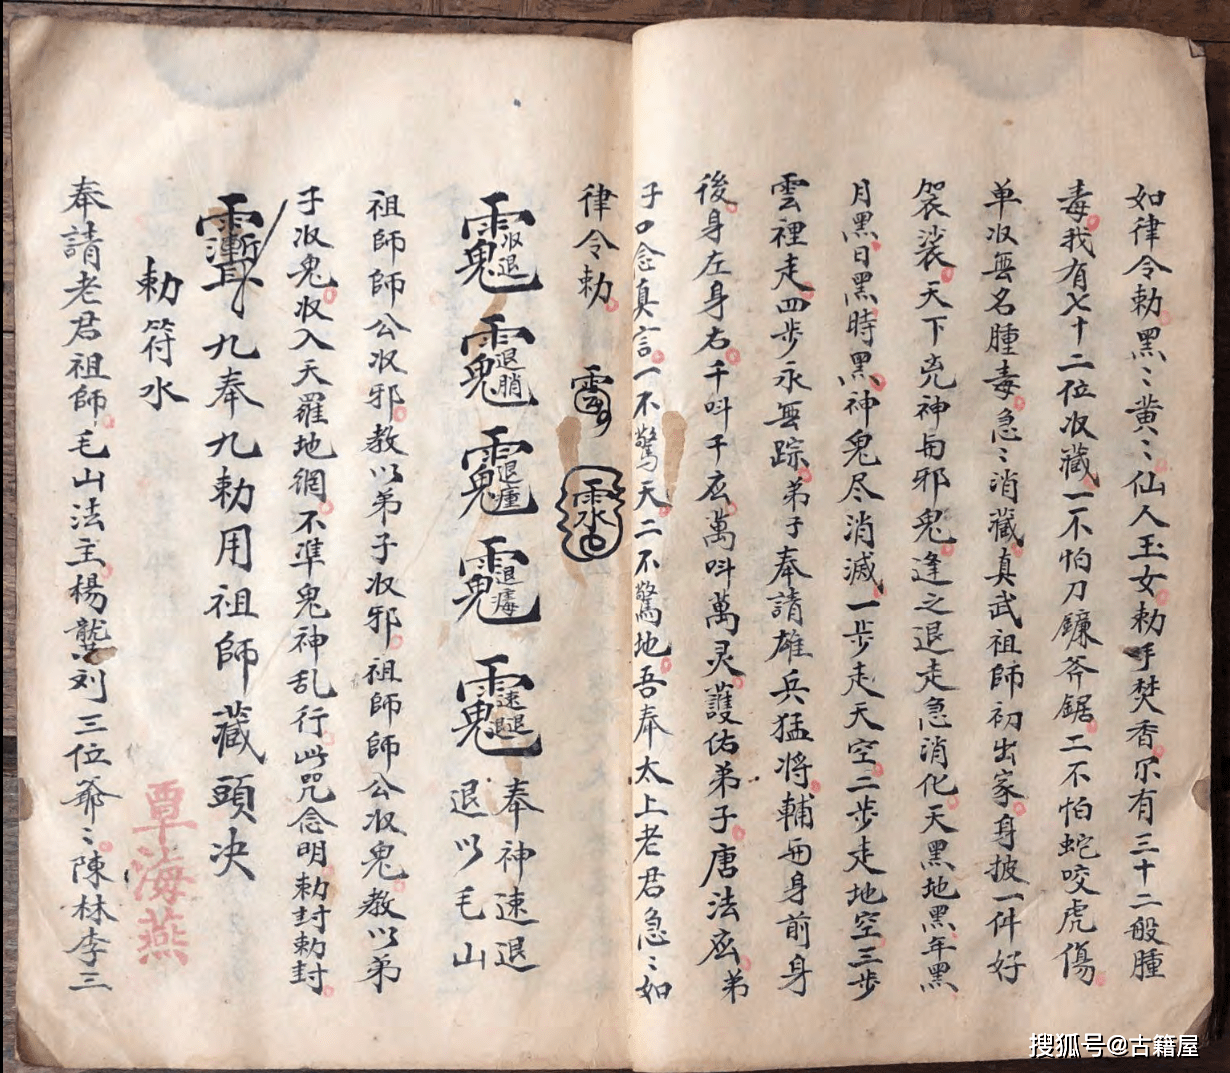 如律令勅黑〻黄〻仙人玉女勅手焚香尔有三十二般腫
毒我有七十二位収藏一不怕刀鐮斧鋸二不怕蛇咬虎傷
单収無名腫毒急〻消藏真武祖師初出家身披一件好
袈裟天下兇神而邪鬼逢之退走急消化天黑地黑年黑
月黑日黑時黑神鬼尽消滅一步走天空二步走地空三步
雲裡走四步永無踪弟子奉請雄兵猛将輔而身前身
後身左身右千叫千应萬叫萬灵護佑弟子唐法应弟
子口念真言一不驚天二不驚地吾奉太上老君急〻如
律令勅
収退 退腈 退瘇 退瘺 速退 奉神速退
退以毛山
祖師師公収邪教以弟子収邪祖師師公収鬼教以弟
子収鬼収入天羅地網不準鬼神乱行此咒念明勅封勅封
九奉九勅用祖師藏頭决
勅符水
奉請老君祖師毛山法主楊龔刘三位爺〻陳林李三
覃海燕
搜狐号@古籍屋